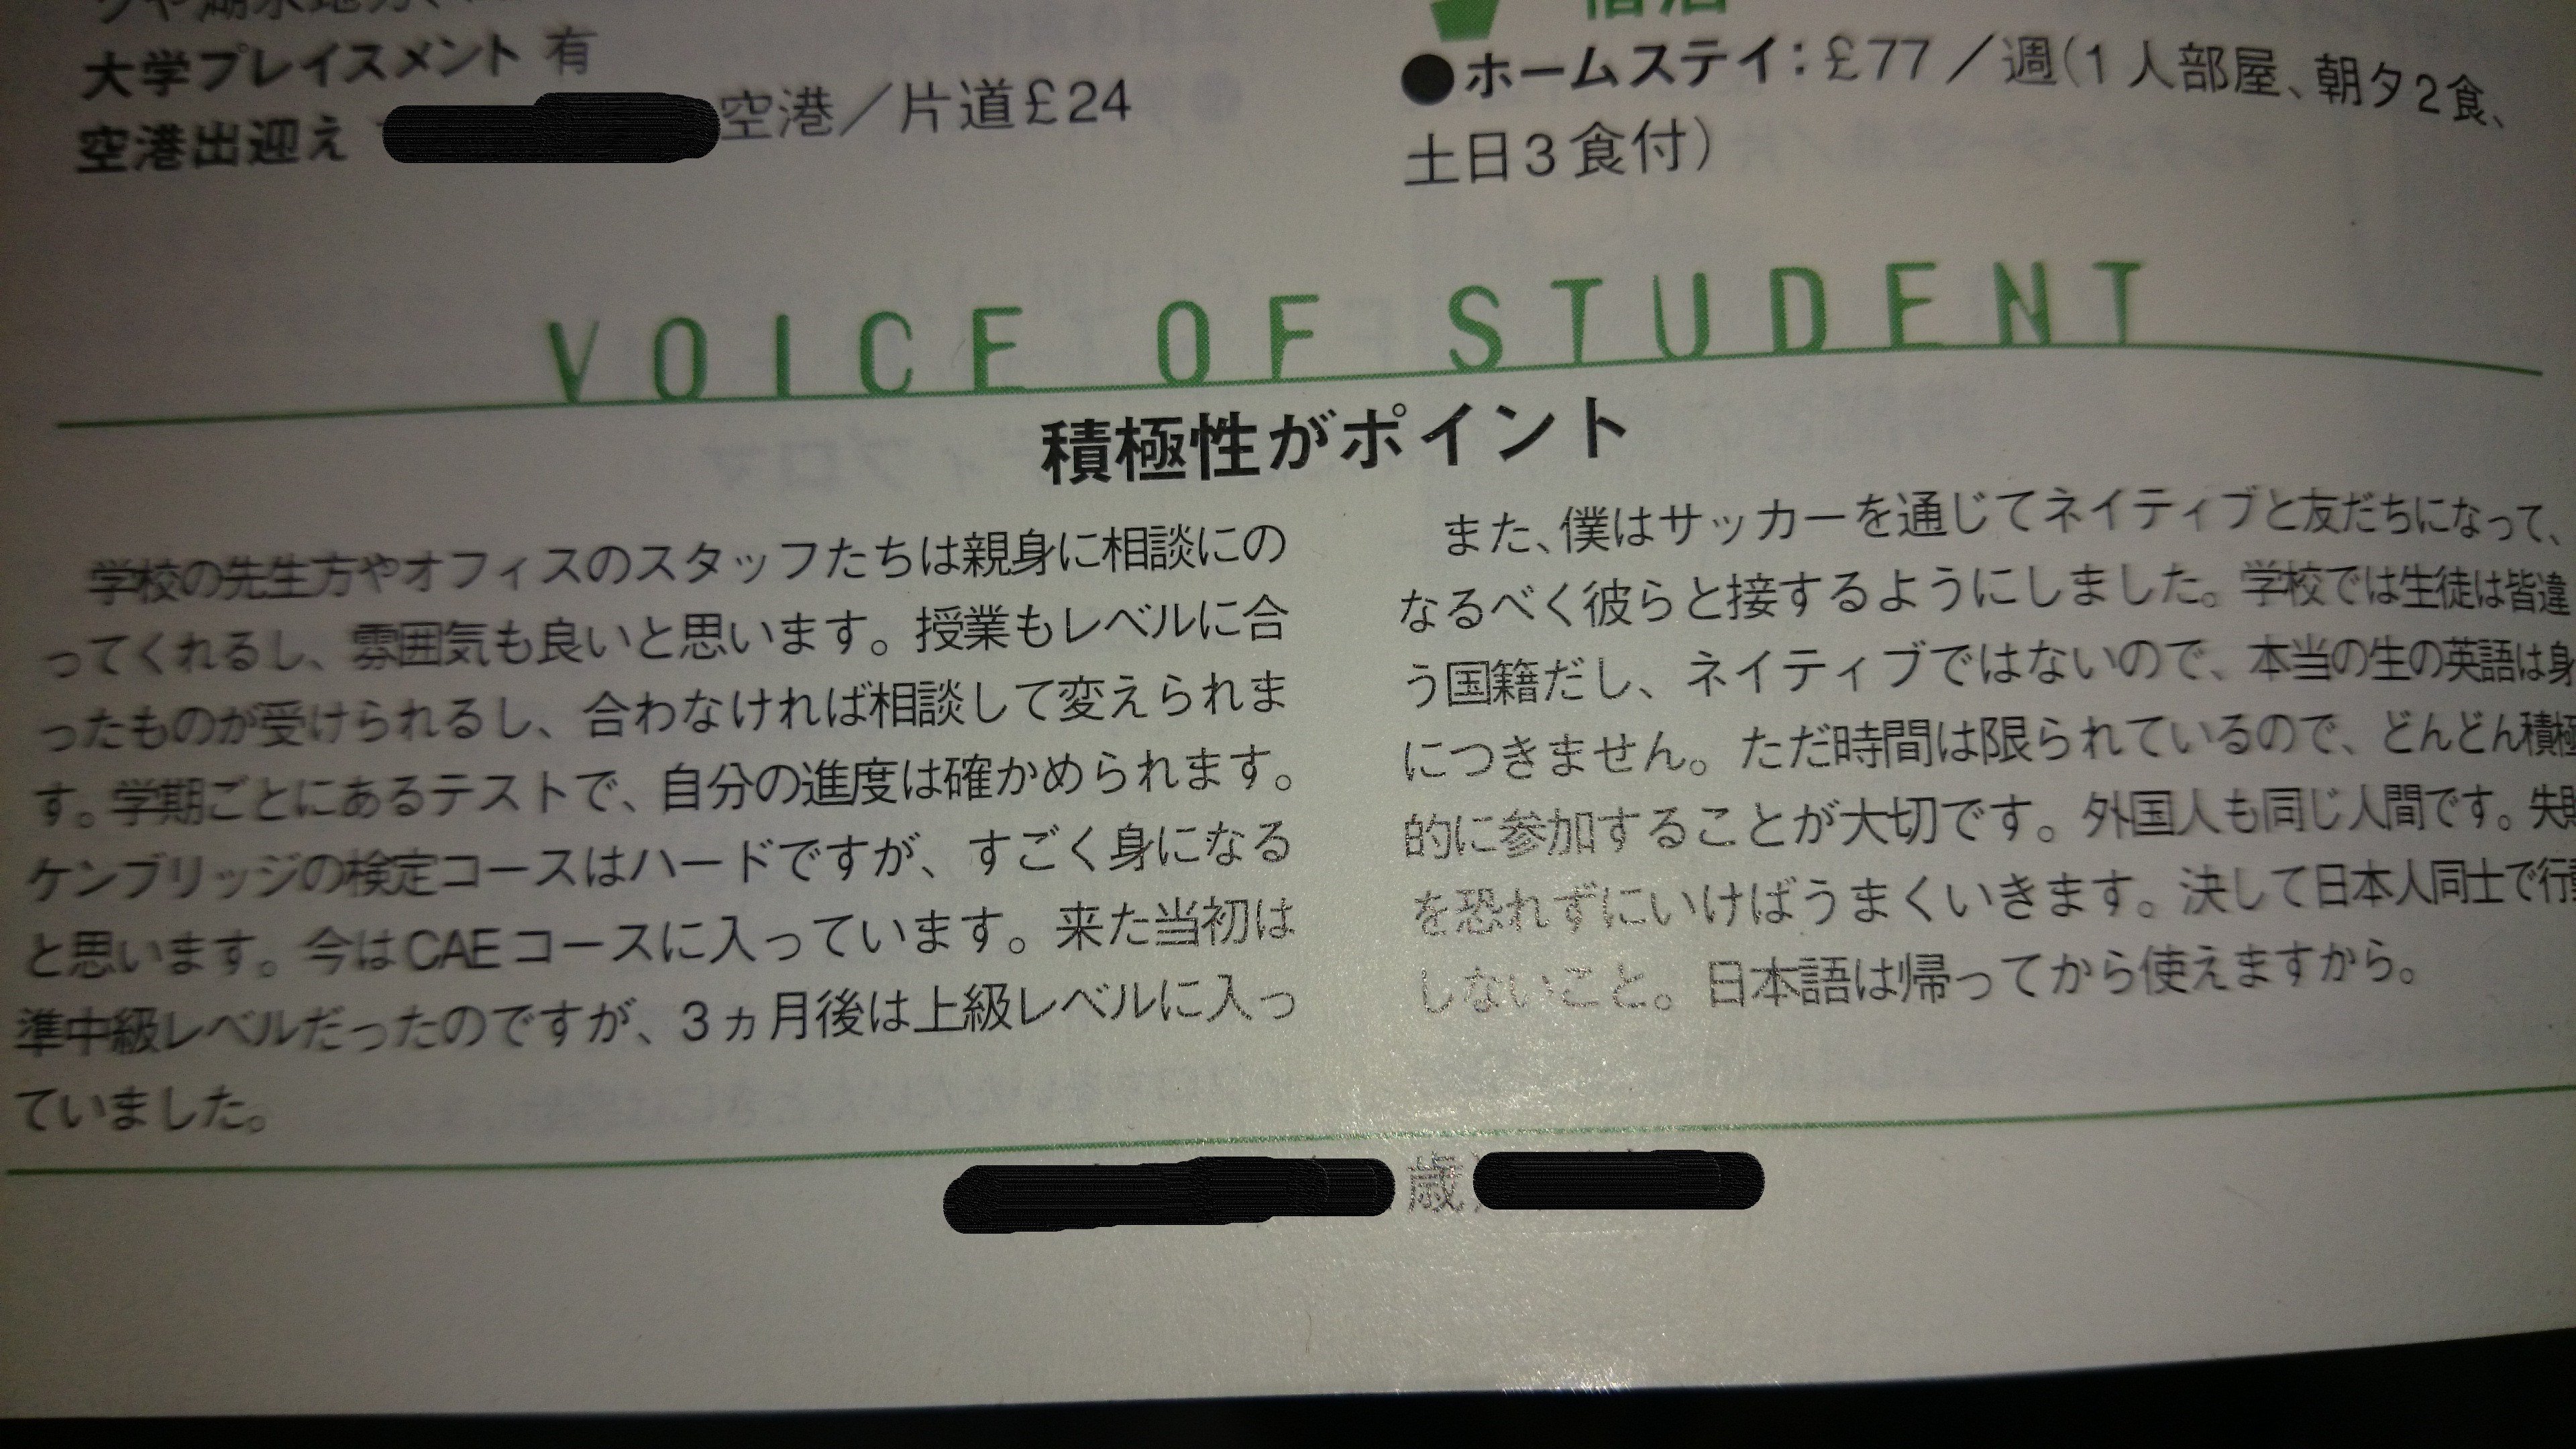 大学プレイスメント 有
空港出迎え
空港／片道£24
●ホームステイ：£77／週(1人部屋、朝夕2食、
土日3食付)
VOICE OF STUDENT
積極性がポイント
学校の先生方やオフィスのスタッフたちは親身に相談にの
ってくれるし、雰囲気も良いと思います。授業もレベルに合
ったものが受けられるし、合わなければ相談して変えられま
す。学期ごとにあるテストで、自分の進度は確かめられます。
ケンブリッジの検定コースはハードですが、すごく身になる
と思います。今はCAEコースに入っています。来た当初は
準中級レベルだったのですが、3ヵ月後は上級レベルに入っ
ていました。
また、僕はサッカーを通じてネイティブと友だちになって、
なるべく彼らと接するようにしました。学校では生徒は皆違
う国籍だし、ネイティブではないので、本当の生の英語は身
につきません。ただ時間は限られているので、どんどん積極
的に参加することが大切です。外国人も同じ人間です。失敗
を恐れずにいけばうまくいきます。決して日本人同士で行動
しないこと。日本語は帰ってから使えますから。
歳)